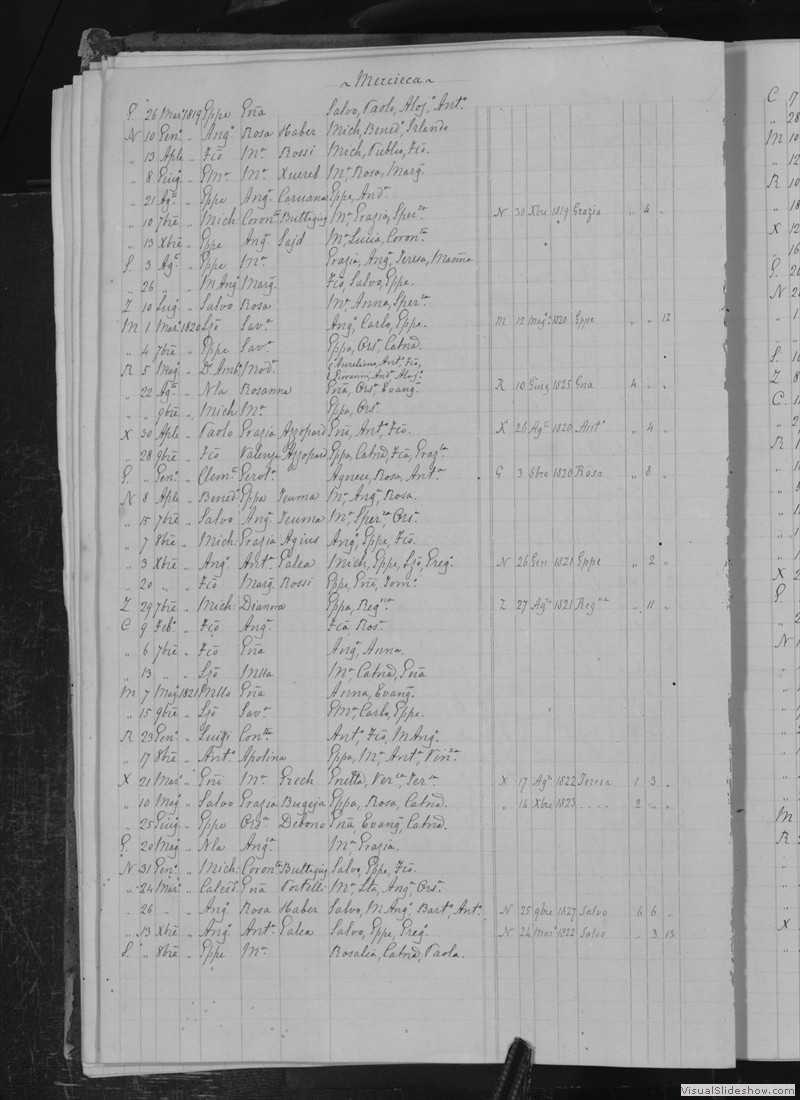 ~ Mercieca ~
G. 26 Mar. 1819 Eppe Gña Salvo, Paolo, Aloj.º Ant.º
N 10 Gen.º „ Ang.º Rosa Haber Mich, Bened.º, Irlando
„ 13 Aple „ Fcõ M.ª Rossi Mich, Publio, Fcõ.
„ 8 Giug. „ M.ª Xuereb M.ª Rosa, Marg.
„ 21 Ag.º „ Eppe Ang.ª Caruana Eppe, And.ª
„ 10 7bre „ Mich: Coron.ta Buttigieg M.ª Grazia, Sper.za N 30 Xbre 1819 Grazia „ 4 „
„ 13 Xbre „ Eppe Ang.ª Sajd M.ª Lucia, Coron.ta
S. 3 Ag.º „ Eppe M.ª Grazia, Ang.ª, Teresa, Marña
„ 26 „ „ M Ang.º Marg. Fcõ, Salvo, Eppe.
Z 10 Lug. „ Salvo Rosa M.ª Anna, Sper.za
M 1 Mar. 1820 Ljõ Sav.ª Ang.º, Carlo, Eppe. M 12 Mag.º 1820 Eppe „ „ 12
„ 4 7bre „ Eppe Sav.ª Eppa, Ors.ª, Catnã.
R 5 Mag. „ D.r Amb.º Mod.ª Aureliano, Ant.º, Fcõ, Giovanni, And.ª Aloj.º
„ 22 Ag.º „ Nla Rosanna Gñã, Ors.ª, Evang. R 10 Giug 1825 Gna 4 „ „
„ „ 9bre „ Mich M.ª Eppa, Ors.ª
X 30 Aple „ Paolo Grazia Azzopard Gñi, Ant.º, Fcõ. X 26 Ag.º 1820 Ant.º „ 4 „
„ 28 9bre „ Fcõ Valenza Azzopard Eppa, Catnã, Fcã, Graz.la
G. „ Gen.º „ Clem.e Gerot.ª Agnese, Rosa, Ant.ª G 3 8bre 1820 Rosa „ 8 „
N 8 Aple „ Bened.º Eppa Teuma M.ª Ang.ª, Rosa.
„ 15 7bre „ Salvo Ang.ª Teuma M.ª Sper.za, Ors.ª
„ 7 8bre „ Mich: Grazia Agius Ang.º, Eppe, Fcõ.
„ 3 Xbre „ Ang.º Ant.ª Galea Mich, Eppe, Ljõ, Greg.º N 26 Gen 1821 Eppe „ 2 „
„ 20 „ „ Fcõ Marg. Rossi Eppe, Gñi, Tom.º
Z 29 7bre „ Mich: Dianora Eppa, Reg.na Z 27 Ag.º 1821 Reg.na „ 11 „
C 9 Feb.º „ Fcõ Ang.ª Fcã Ros.ª
„ 6 7bre „ Fcõ Gñã Ang.ª, Anna.
„ 13 „ „ Ljõ Mlla M.ª Catnã, Gñã
M 7 Mag. 1821 Mllo Gñã Anna, Evang.
„ 15 9bre „ Ljõ Sav.ª Carlo, Eppe.
R 23 Gen.º „ Luigi Con.tta Ant.º, Fcõ, M Ang.º
„ 17 8bre „ Ant.º Apolina Eppa, M.ª Ant.ª, Vin.za
X 21 Mar. „ Gñi M.ª Grech Gnetta, Ver.ca, Ter.sa X 17 Ag.º 1822 Teresa 1 3 „
„ 10 Mag „ Salvo Grazia Bugeja Eppa, Rosa, Catnã. „ 14 Xbre 1823 . . . . 2 „ „
„ 25 Giug „ Eppe Ors.ª Debono Gñã, Evang, Catnã.
G. 20 Mag „ Nla Ang.ca M.ª Grazia.
N 31 Gen.º „ Mich: Coron.ta Buttigieg Salvo, Eppe, Fcõ.
„ 24 Mar. „ Calced.º Gñã Portelli M.ª Lta, Ang.ª, Ors.ª
„ 26 „ „ Ang.º Rosa Haber Salvo, M Ang.º Bart.º, Ant.º N 25 9bre 1827 Salvo 6 6 „
„ 13 Xbre „ Ang.º Ant.ª Galea Salvo, Eppe, Greg.º N 24 Mar. 1822 Salvo „ 3 13
S. „ 8bre „ Eppe M.ª Rosalia, Catnã, Paola.
C 17
„ 28
M 10
„ 12
R 10
„ 18
X 12
„ 16
VisualSlideshow.com